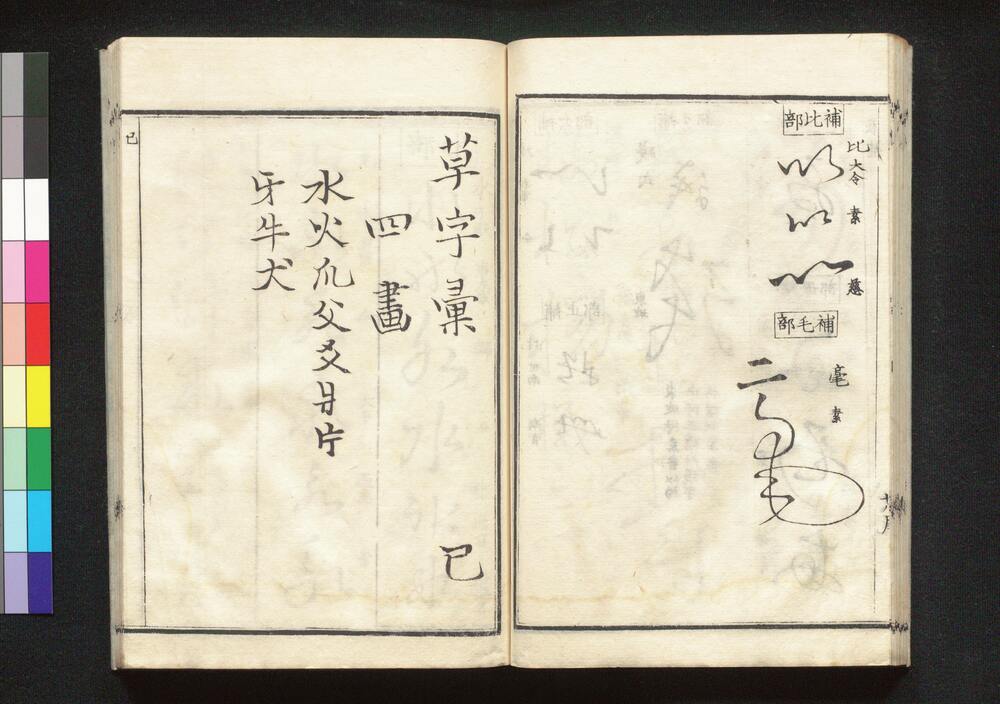 補比部
比 大令 素 懸
補毛部
毫 素
草字彙 巳
四畫
水火爪父爻爿片
牙牛犬
巳